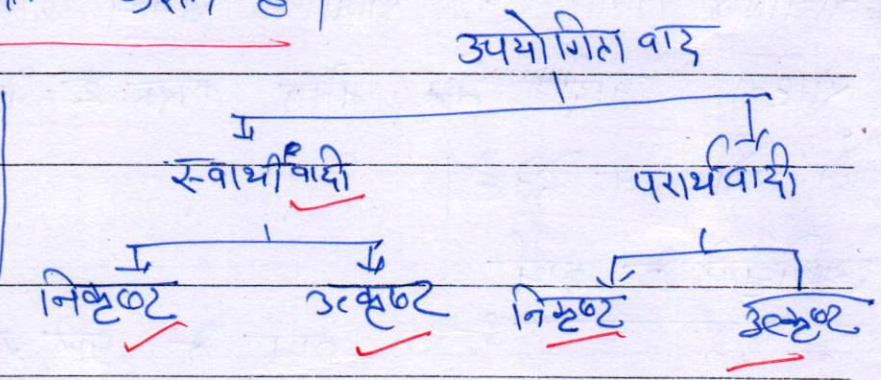 उपयोगितावाद
स्वार्थवादी परार्थवादी
निकृष्ट उत्कृष्ट निकृष्ट उत्कृष्ट